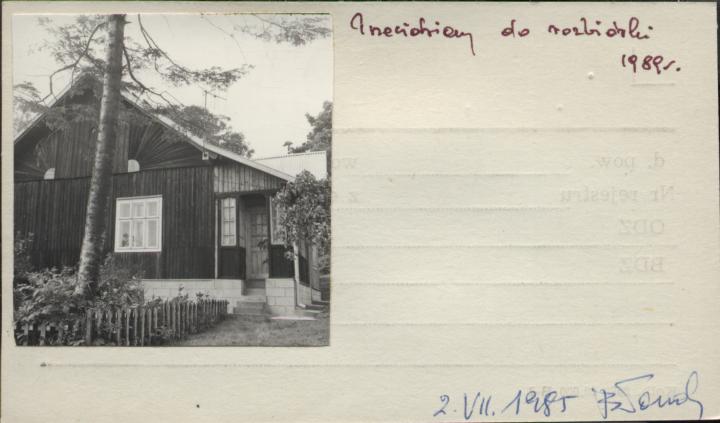 Przewidziany do rozbiórki
1989r.
d. pow.
Nr rejestru z d
ODZ
BDZ
2.VII.1985